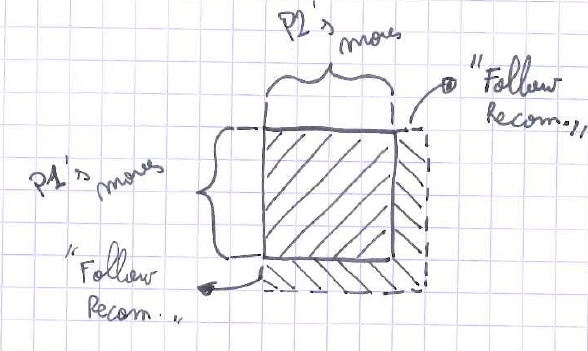 P2's moves
"Follow
Recom.„
P1's moves
"Follow
Recom.„